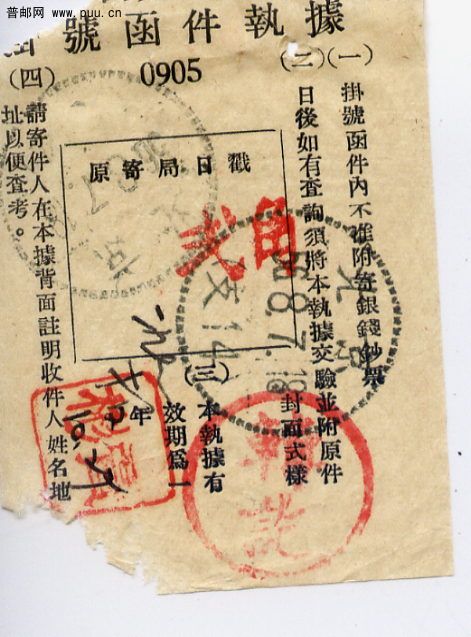 普邮网 www.puu.cn
掛號函件執據
0905
(一)掛號函件內不准附寄銀錢鈔票
(二)日後如有查詢須將本執據交驗並附原件
封面式樣
(三)本執據有
效期爲一
年
(四)請寄件人在本據背面註明收件人姓名地
址以便查考。
原寄局日戳
貳角
58.7.18
支14